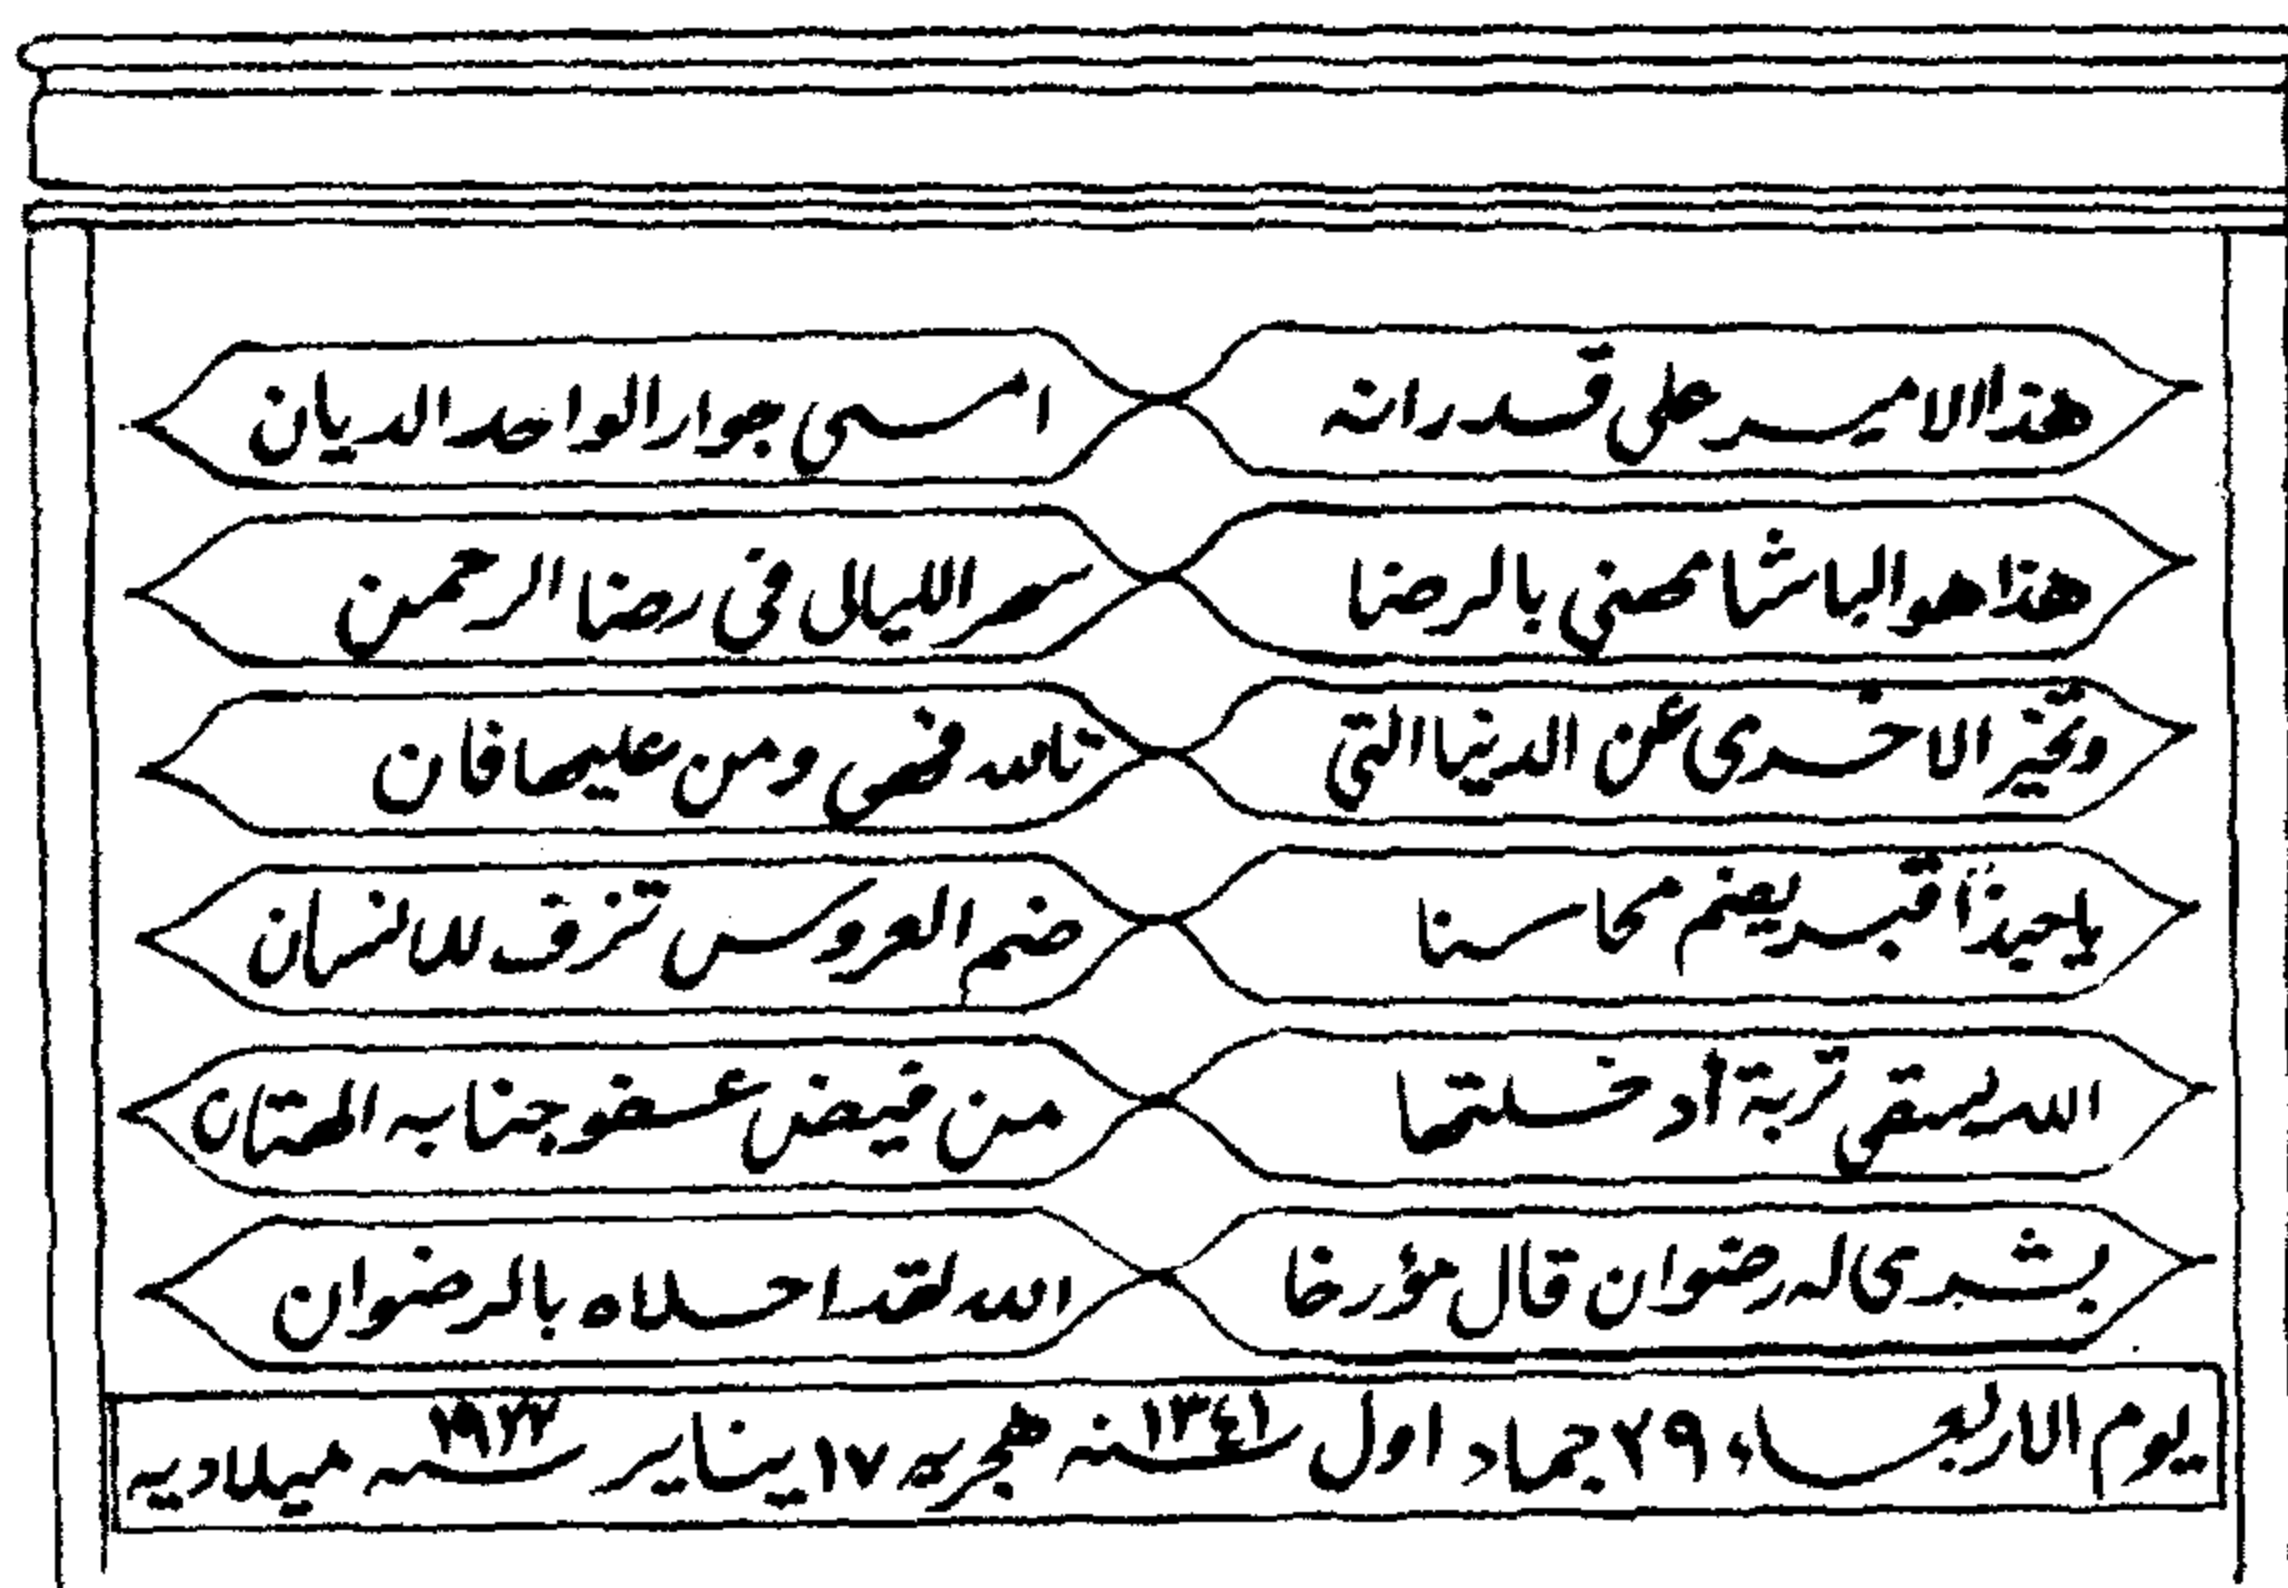 هذا الامير على قدر انه امسى جوار الواحد الديان
هذا هو الباشا مهني بالرضا سهر الليالى فى رضا الرحمن
وتخير الاخرى عن الدنيا التى تالله فهى ومن عليها فان
يا حبذا قبر يضم محاسنا ضم العروس تزف للانسان
الله يسقى تربة أدخلتها من فيض عفو جنابه الهتان
بشرى له رضوان قال مؤرخا الله لقد احلاه بالرضوان
يوم الاربعاء ٢٩ جماد اول سنة ١٣٤١ هجريه ١٧ يناير سنة ١٩٢٣ ميلاديه